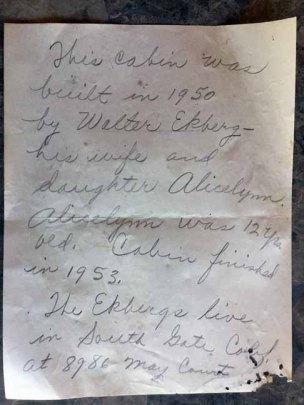 This cabin was
built in 1950
by Walter Ekberg-
his wife and
daughter Alicelynn.
Alicelynn was 12 yrs
old. Cabin finished
in 1953.
The Ekbergs live
in South Gate, Calif.
at 8986 May Court